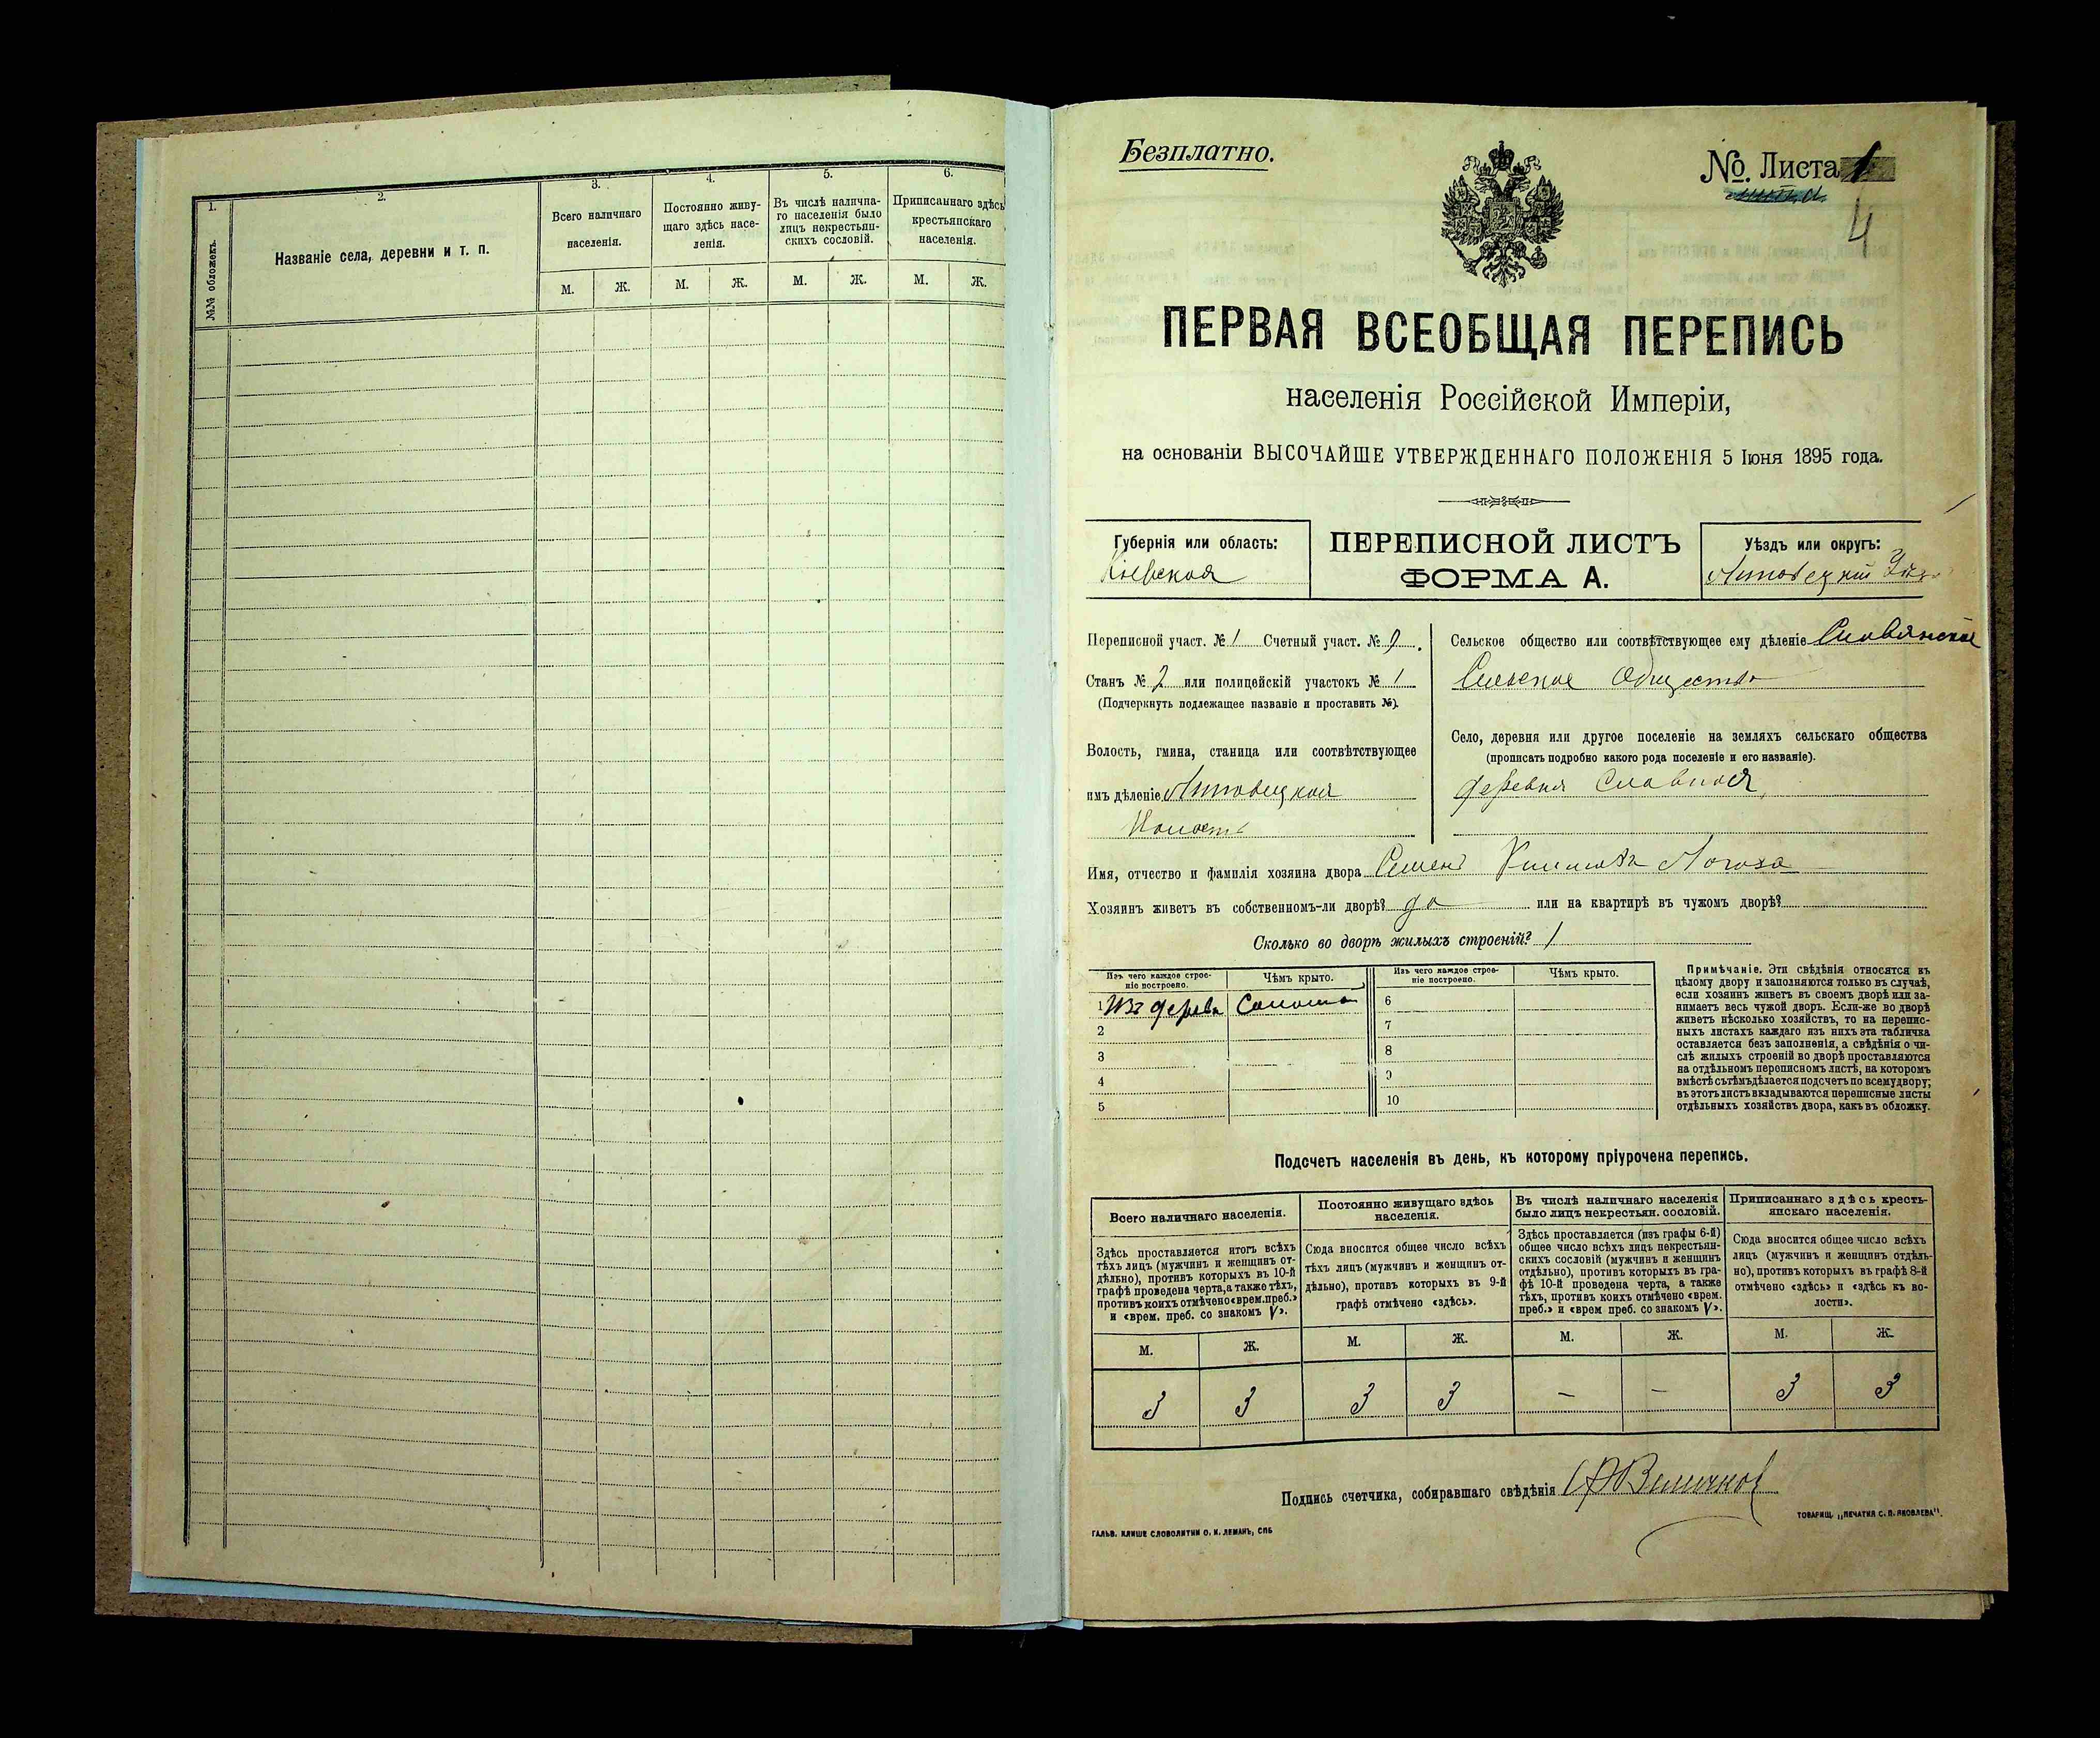 1.
2.
3.
4.
5.
6.
№№ обложекъ.
Названіе села, деревни и т. п.
Всего наличнаго
населенія.
Постоянно живу-
щаго здѣсь насе-
ленія.
Въ числѣ налична-
го населенія было
лицъ некрестьян-
скихъ сословій.
Приписаннаго здѣсь
крестьянскаго
населенія.
М. Ж. М. Ж. М. Ж. М. Ж.
Безплатно.
№. Листа 1
4
ПЕРВАЯ ВСЕОБЩАЯ ПЕРЕПИСЬ
населенія Россійской Имперіи,
на основаніи ВЫСОЧАЙШЕ УТВЕРЖДЕННАГО ПОЛОЖЕНІЯ 5 Іюня 1895 года.
Губернія или область:
Кіевская
ПЕРЕПИСНОЙ ЛИСТЪ
ФОРМА А.
Уѣздъ или округъ:
Липовецкій
Переписной участ. № 1 Счетный участ. № 9.
Станъ № 2 или полицейскій участокъ № 1
(Подчеркнуть подлежащее названіе и проставить №).
Волость, гмина, станица или соотвѣтствующее
имъ дѣленіе Липовецкая
Волость
Сельское общество или соотвѣтствующее ему дѣленіе
Сельское Общество
Село, деревня или другое поселеніе на земляхъ сельскаго общества
(прописать подробно какого рода поселеніе и его названіе).
деревня Славная
Имя, отчество и фамилія хозяина двора Семенъ
Хозяинъ живетъ въ собственномъ-ли дворѣ? да или на квартирѣ въ чужомъ дворѣ?
Сколько во дворѣ жилыхъ строеній? 1
Изъ чего каждое строе-
ніе построено.
Чѣмъ крыто.
Изъ чего каждое строе-
ніе построено.
Чѣмъ крыто.
1 Изъ дерева Солома
2
3
4
5
6
7
8
9
10
Примѣчаніе. Эти свѣдѣнія относятся къ
цѣлому двору и заполняются только въ случаѣ,
если хозяинъ живетъ въ своемъ дворѣ или за-
нимаетъ весь чужой дворъ. Если-же во дворѣ
живетъ нѣсколько хозяйствъ, то на перепис-
ныхъ листахъ каждаго изъ нихъ эта табличка
оставляется безъ заполненія, а свѣдѣнія о чи-
слѣ жилыхъ строеній во дворѣ проставляются
на отдѣльномъ переписномъ листѣ, на которомъ
вмѣстѣ съ тѣмъ дѣлается подсчетъ по всему двору;
въ этотъ листъ вкладываются переписные листы
отдѣльныхъ хозяйствъ двора, какъ въ обложку.
Подсчетъ населенія въ день, къ которому пріурочена перепись.
Всего наличнаго населенія.
Постоянно живущаго здѣсь
населенія.
Въ числѣ наличнаго населенія
было лицъ некрестьян. сословій.
Приписаннаго здѣсь кресть-
янскаго населенія.
Здѣсь проставляется итогъ всѣхъ
тѣхъ лицъ (мужчинъ и женщинъ от-
дѣльно), противъ которыхъ въ 10-й
графѣ проведена черта, а также тѣхъ,
противъ коихъ отмѣчено «врем. преб.»
и «врем. преб. со знакомъ V».
Сюда вносится общее число всѣхъ
тѣхъ лицъ (мужчинъ и женщинъ от-
дѣльно), противъ которыхъ въ 9-й
графѣ отмѣчено «здѣсь».
Здѣсь проставляется (изъ графы 6-й)
общее число всѣхъ лицъ некрестьян-
скихъ сословій (мужчинъ и женщинъ
отдѣльно), противъ которыхъ въ гра-
фѣ 10-й проведена черта, а также
тѣхъ, противъ коихъ отмѣчено «врем.
преб.» и «врем преб. со знакомъ V».
Сюда вносится общее число всѣхъ
лицъ (мужчинъ и женщинъ отдѣль-
но), противъ которыхъ въ графѣ 8-й
отмѣчено «здѣсь» и «здѣсь къ во-
лости».
М. Ж. М. Ж. М. Ж. М. Ж.
3 3 3 3 — — 3 3
Подпись счетчика, собиравшаго свѣдѣнія
ГАЛЬВ. КЛИШЕ СЛОВОЛИТНИ О. И. ЛЕМАНЪ, СПБ
ТОВАРИЩ. „ПЕЧАТНЯ С. П. ЯКОВЛЕВА".